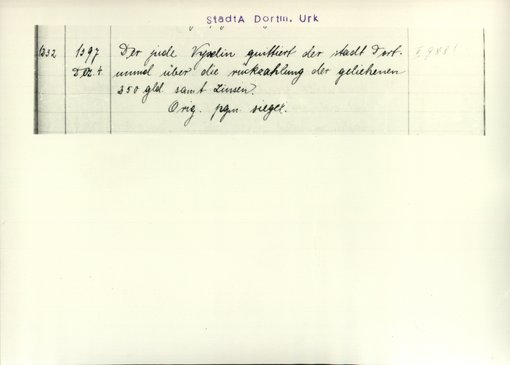 StadtA Dortm. Urk
1332 1397 Der jude Vyvelin quittiert der stadt Dort-
Dez. 4. mund über die rückzahlung der geliehenen
350 gld. samt Zinsen.
Orig. pgm. siegel.